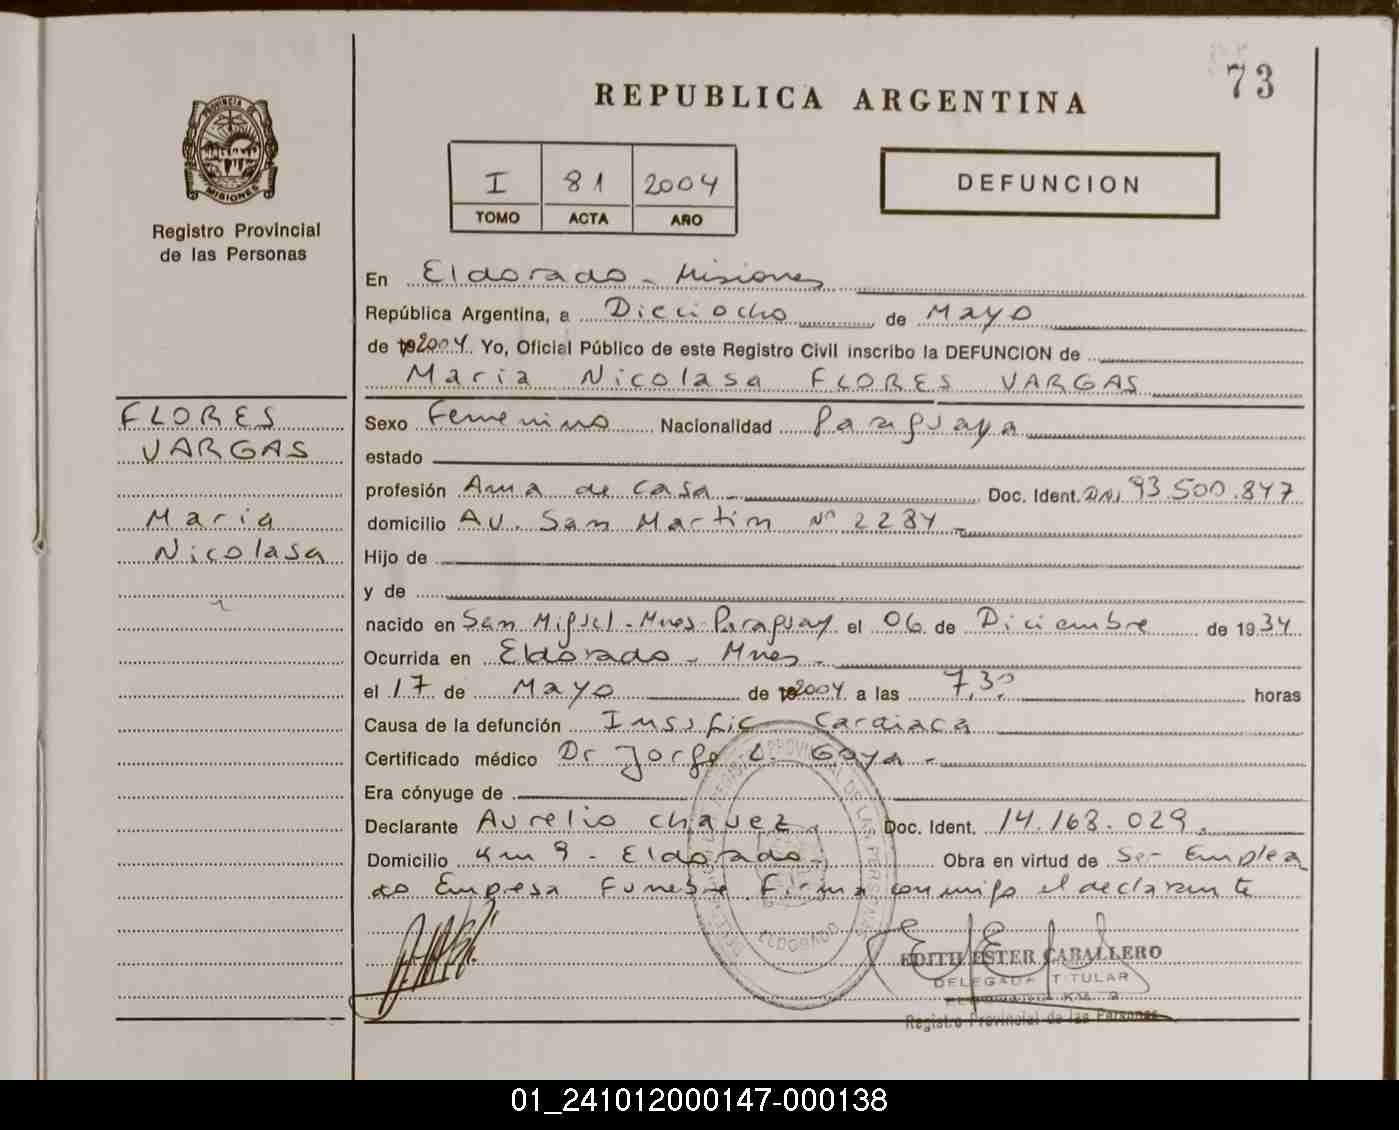 73
REPUBLICA ARGENTINA
PROVINCIA DE
MISIONES
Registro Provincial
de las Personas
I 81 2004
TOMO ACTA AÑO
DEFUNCION
En Eldorado - Misiones
República Argentina, a Dieciocho de Mayo
de 2004 Yo, Oficial Público de este Registro Civil inscribo la DEFUNCION de
Maria Nicolasa FLORES VARGAS
FLORES
VARGAS
Maria
Nicolasa
Sexo Femenino Nacionalidad Paraguaya
estado
profesión Ama de Casa - Doc. Ident. DNI 93.500.847
domicilio Av. San Martin Nº 2284 -
Hijo de
y de
nacido en San Miguel - Mnes - Paraguay el 06 de Diciembre de 1934
Ocurrida en Eldorado - Mnes -
el 17 de Mayo de 2004 a las 7,30 horas
Causa de la defunción Insufic Cardiaca
Certificado médico Dr Jorge L. Goya -
Era cónyuge de
Declarante Aurelio Chavez - Doc. Ident. 14.168.029.
Domicilio Km 9 - Eldorado - Obra en virtud de Ser Emplea
do Empresa Funebre Firma conmigo el declarante
ELDORADO
EDITH ESTER CABALLERO
DELEGADA TITULAR
Registro Provincial de las Personas
01_241012000147-000138